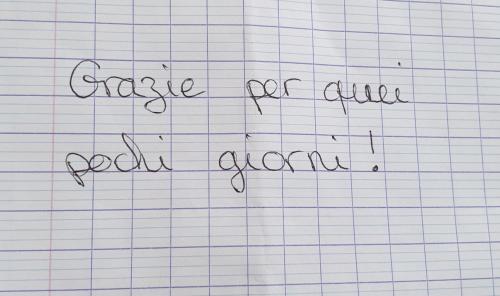 Grazie per quei
pochi giorni!